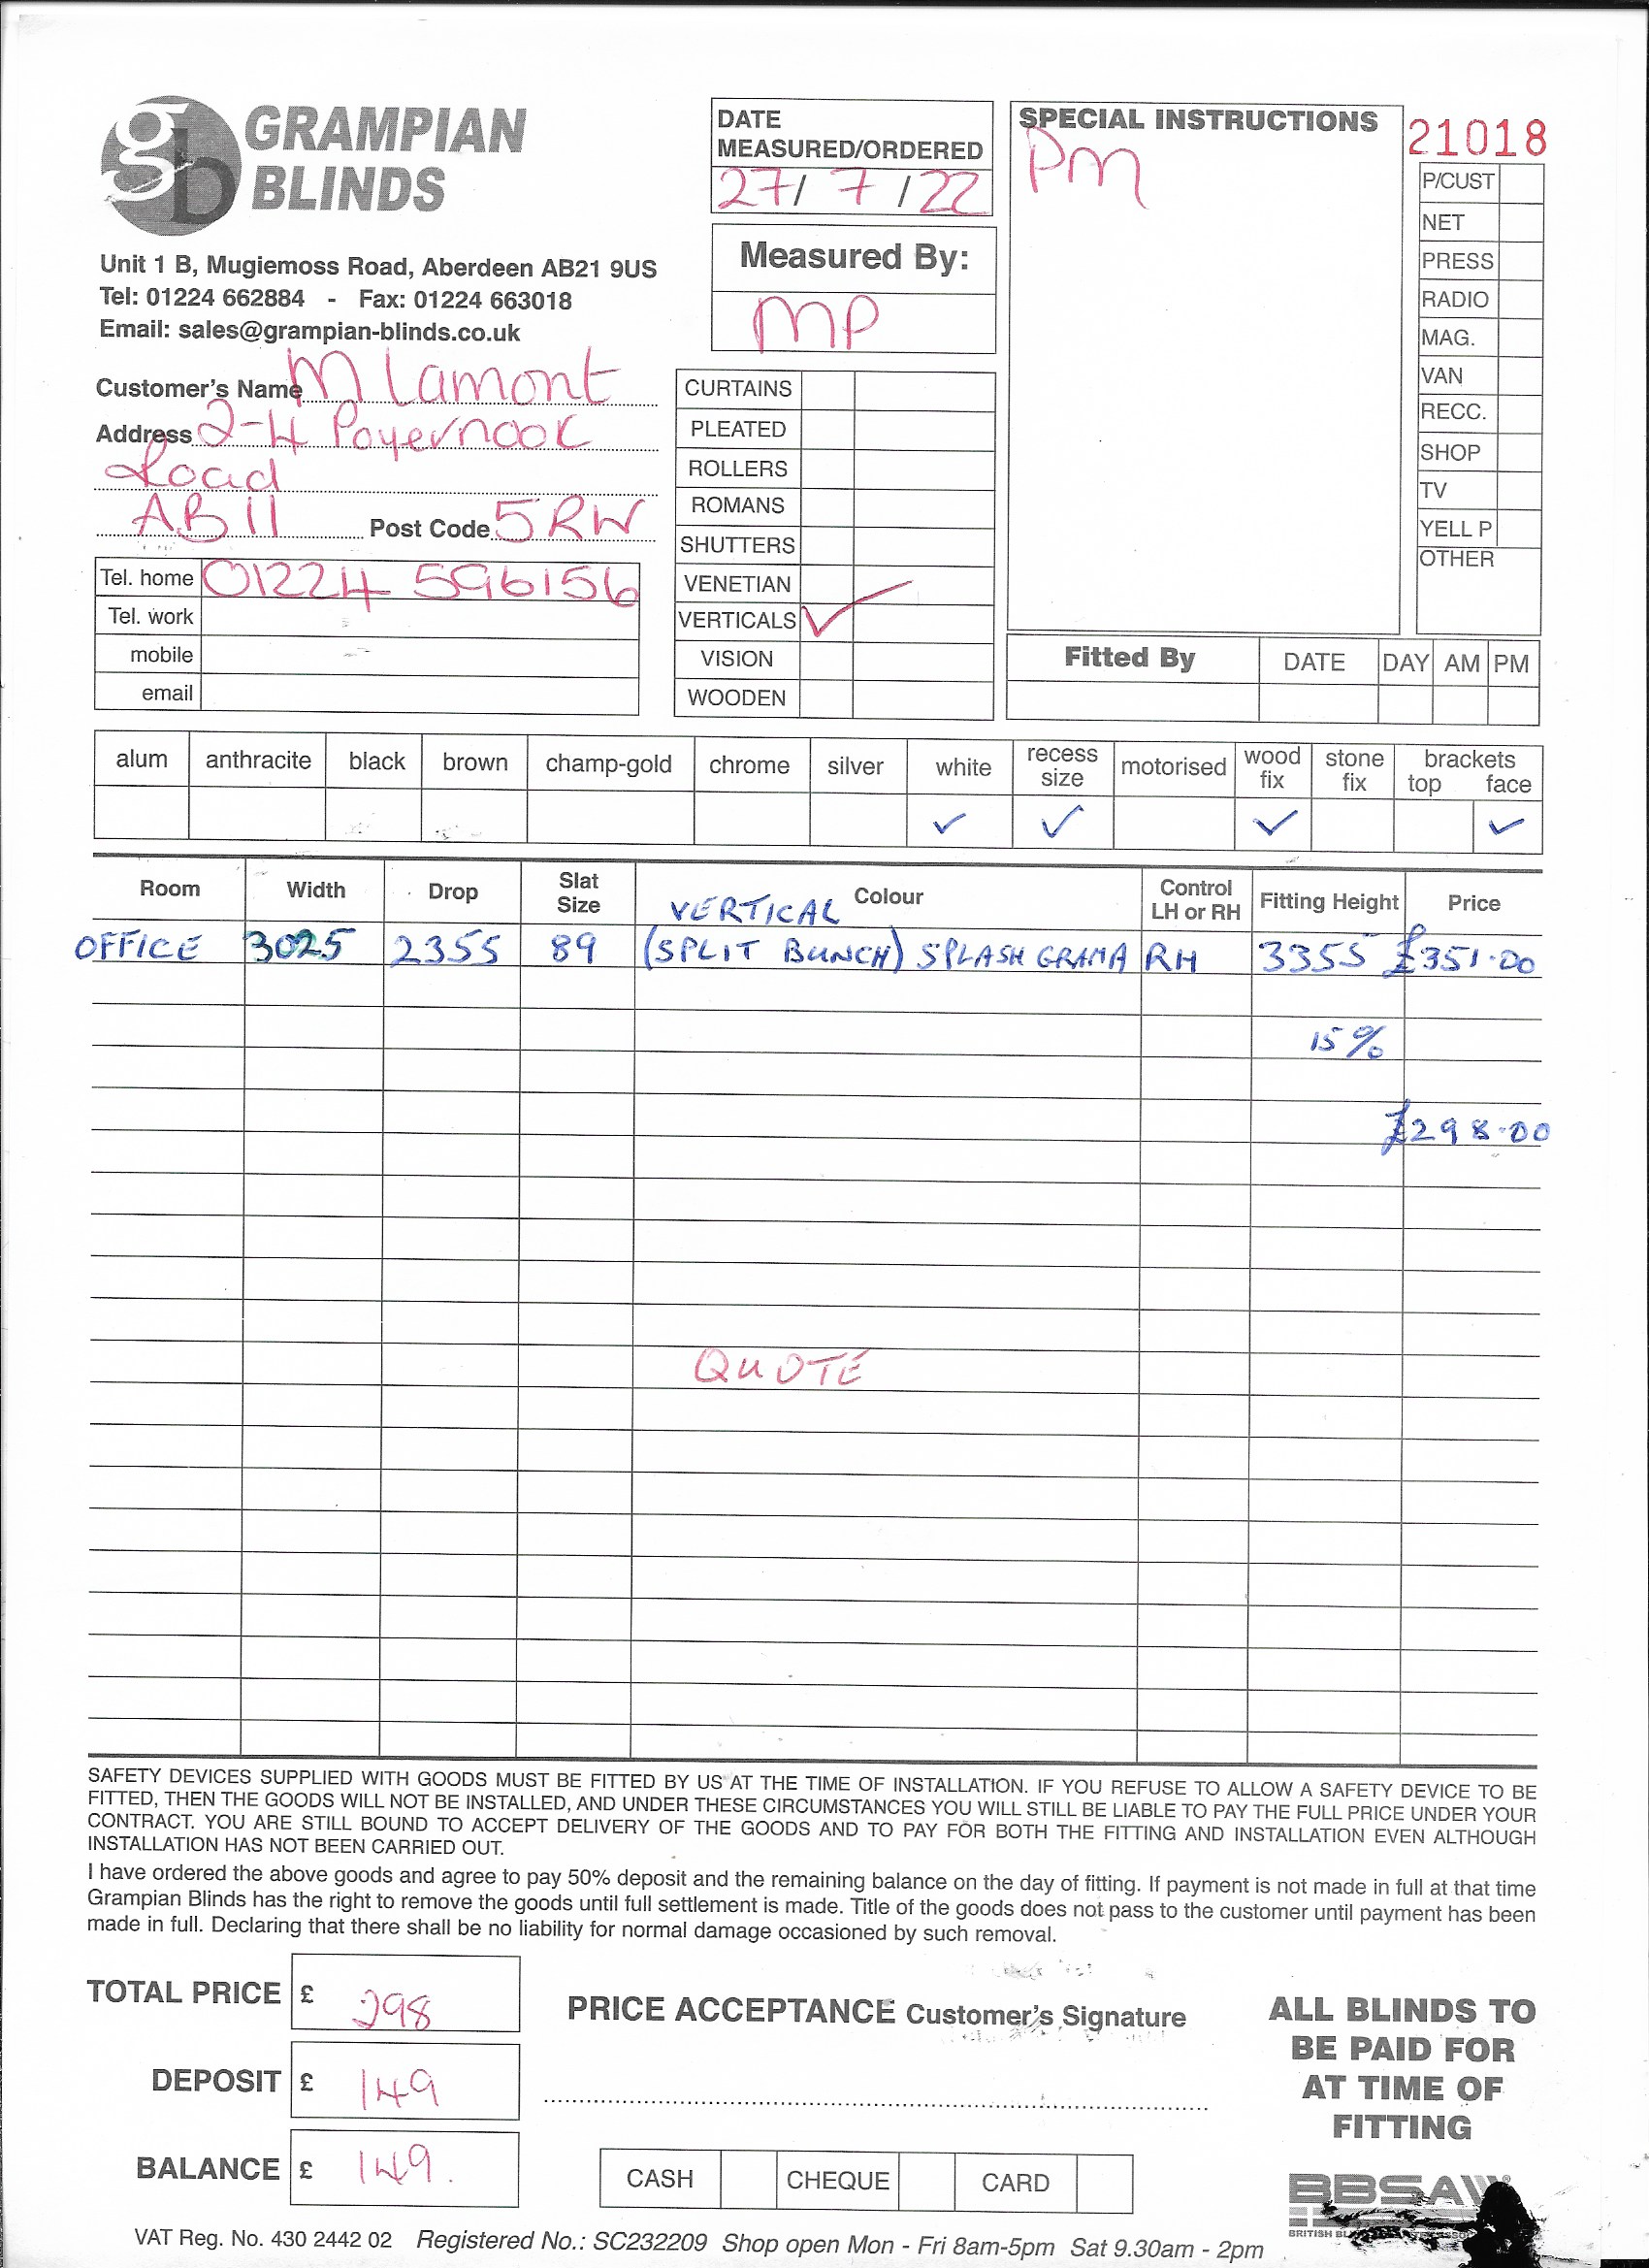 gb GRAMPIAN
BLINDS
Unit 1 B, Mugiemoss Road, Aberdeen AB21 9US
Tel: 01224 662884 - Fax: 01224 663018
Email: sales@grampian-blinds.co.uk
Customer's Name M Lamont
Address 2-4 Poyernook
Road
AB11 Post Code 5RW
Tel. home 01224 596156
Tel. work
mobile
email
DATE
MEASURED/ORDERED
27/ 7 / 22
Measured By:
MP
CURTAINS
PLEATED
ROLLERS
ROMANS
SHUTTERS
VENETIAN
VERTICALS ✓
VISION
WOODEN
SPECIAL INSTRUCTIONS
PM
21018
P/CUST
NET
PRESS
RADIO
MAG.
VAN
RECC.
SHOP
TV
YELL P
OTHER
Fitted By DATE DAY AM PM
alum anthracite black brown champ-gold chrome silver white recess size motorised wood fix stone fix brackets top face
✓ ✓ ✓ ✓
Room Width Drop Slat Size Colour Control LH or RH Fitting Height Price
VERTICAL
OFFICE 3025 2355 89 (SPLIT BUNCH) SPLASH GRAMA RH 3355 £351.00
15%
£298.00
QUOTE
SAFETY DEVICES SUPPLIED WITH GOODS MUST BE FITTED BY US AT THE TIME OF INSTALLATION. IF YOU REFUSE TO ALLOW A SAFETY DEVICE TO BE
FITTED, THEN THE GOODS WILL NOT BE INSTALLED, AND UNDER THESE CIRCUMSTANCES YOU WILL STILL BE LIABLE TO PAY THE FULL PRICE UNDER YOUR
CONTRACT. YOU ARE STILL BOUND TO ACCEPT DELIVERY OF THE GOODS AND TO PAY FOR BOTH THE FITTING AND INSTALLATION EVEN ALTHOUGH
INSTALLATION HAS NOT BEEN CARRIED OUT.
I have ordered the above goods and agree to pay 50% deposit and the remaining balance on the day of fitting. If payment is not made in full at that time
Grampian Blinds has the right to remove the goods until full settlement is made. Title of the goods does not pass to the customer until payment has been
made in full. Declaring that there shall be no liability for normal damage occasioned by such removal.
TOTAL PRICE £ 298
DEPOSIT £ 149
BALANCE £ 149.
PRICE ACCEPTANCE Customer's Signature
CASH CHEQUE CARD
ALL BLINDS TO
BE PAID FOR
AT TIME OF
FITTING
BBSA
BRITISH
VAT Reg. No. 430 2442 02 Registered No.: SC232209 Shop open Mon - Fri 8am-5pm Sat 9.30am - 2pm